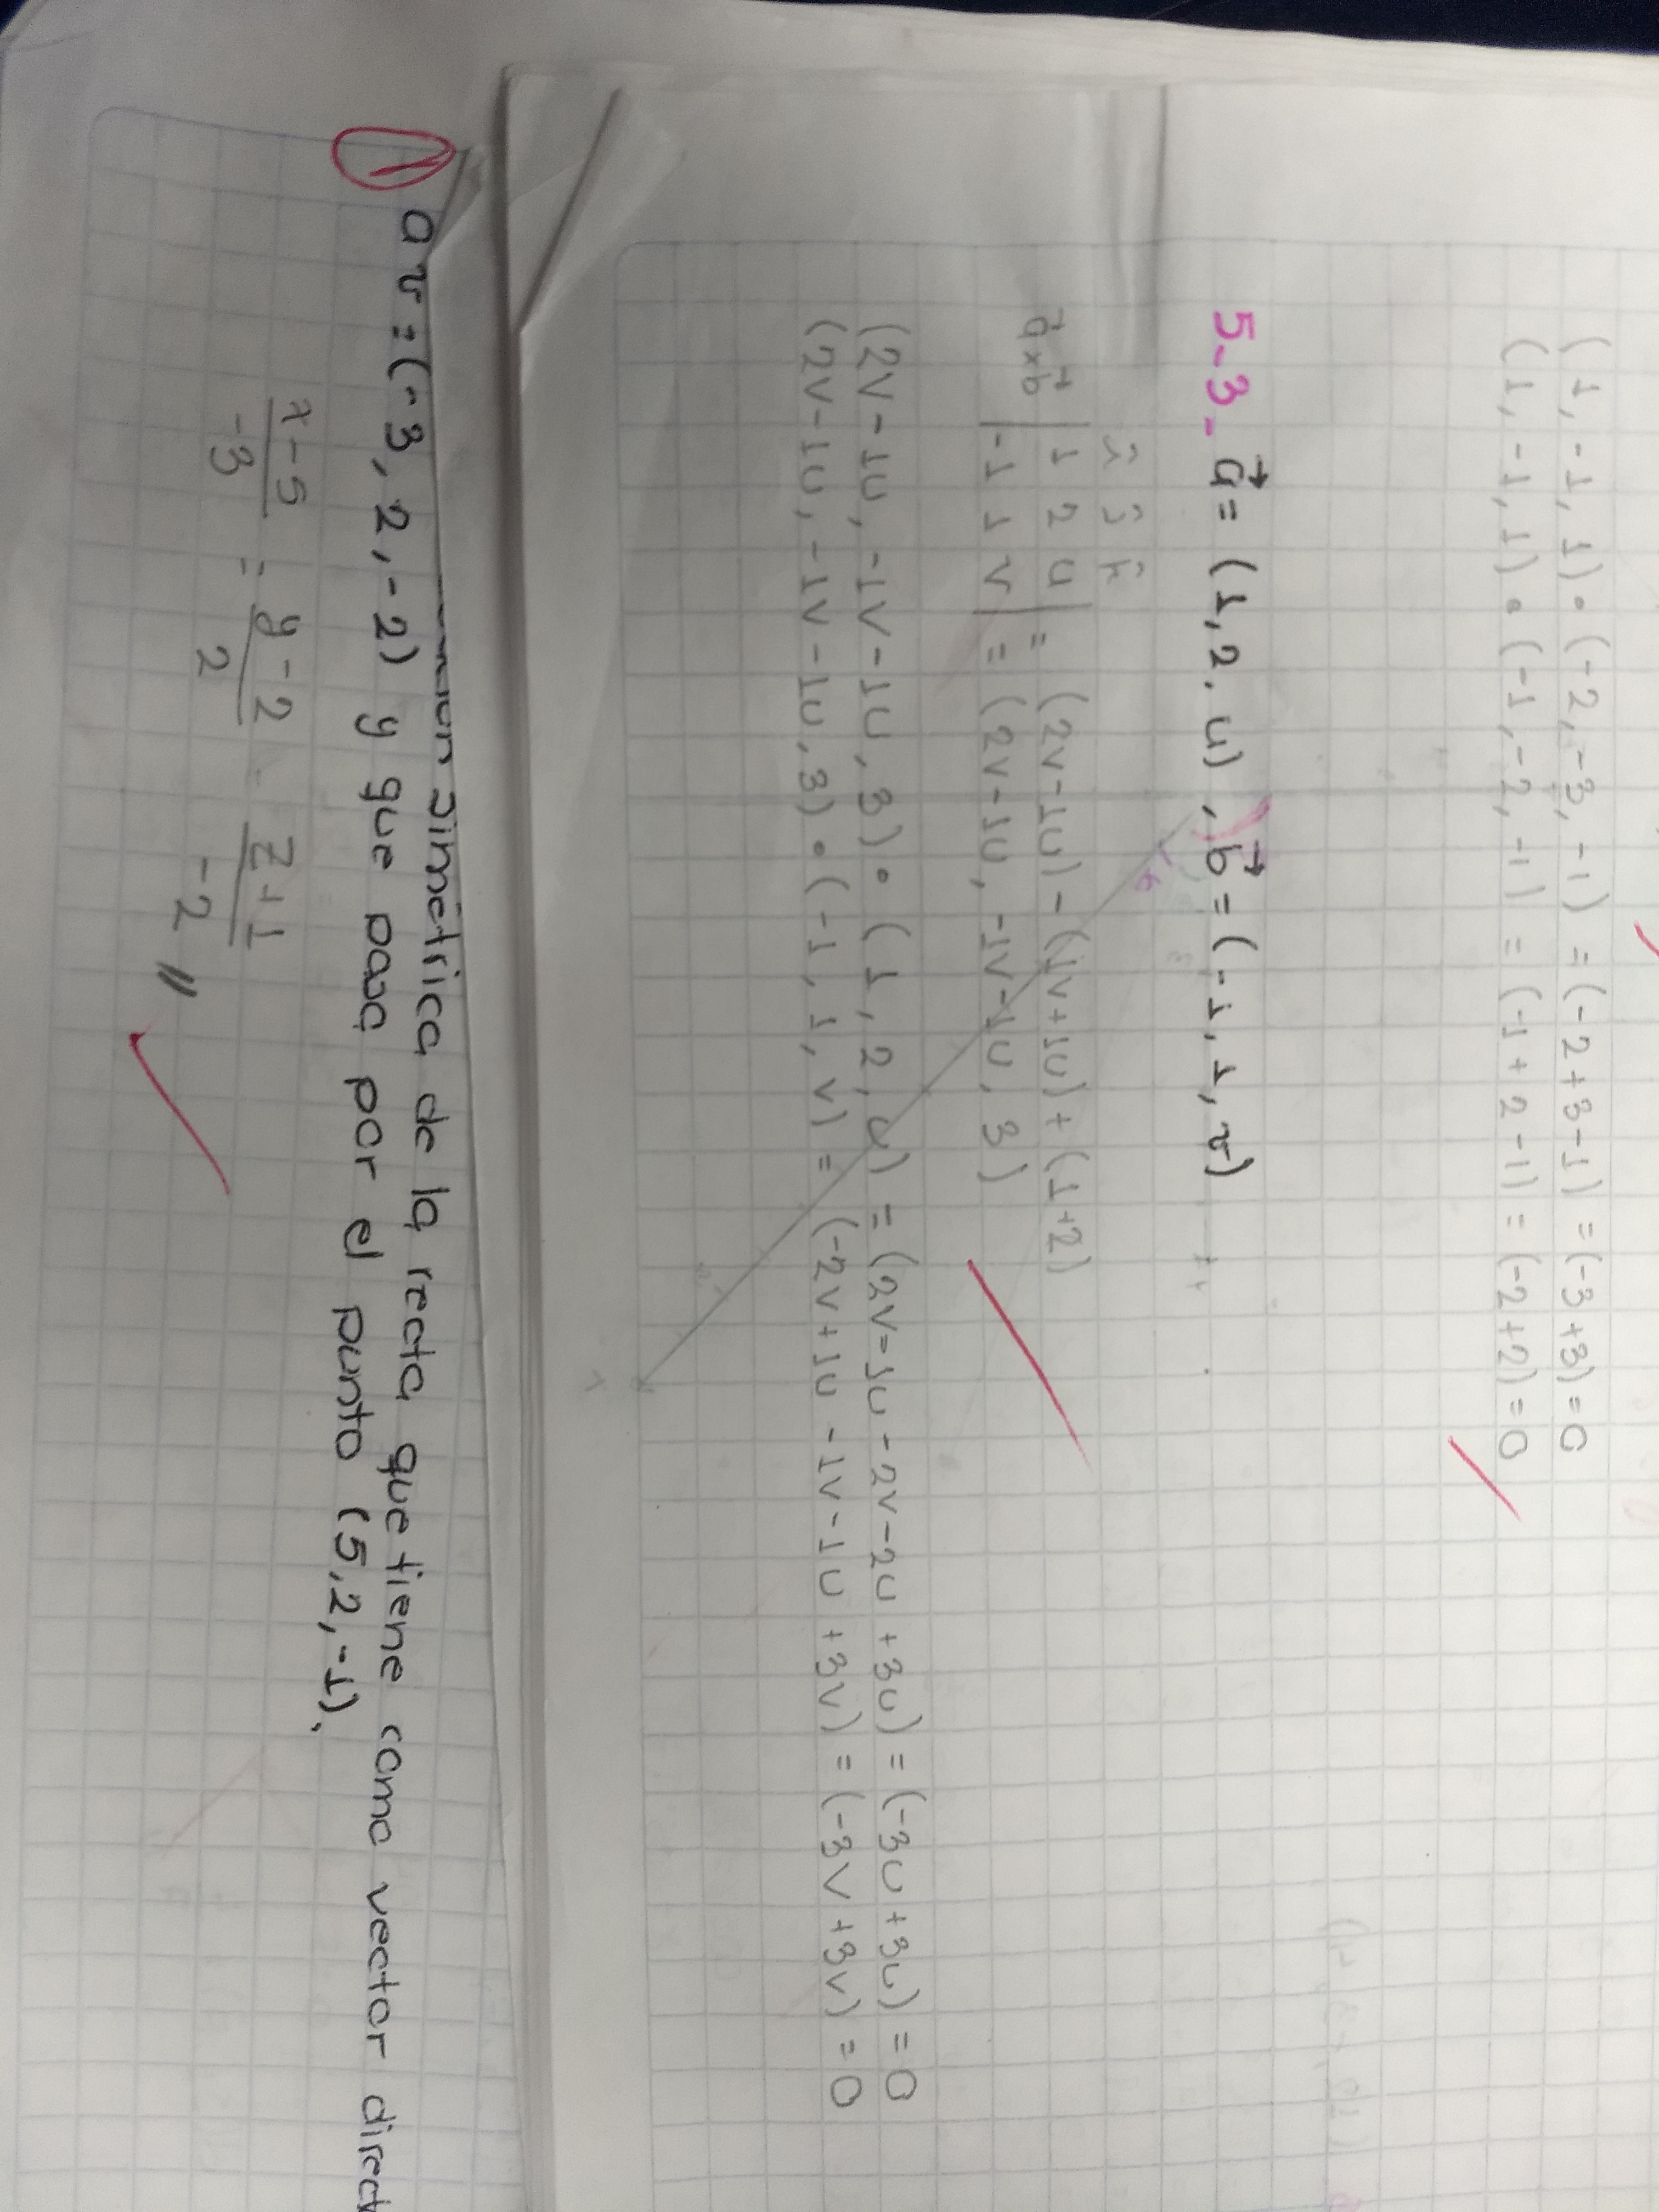 (1, -1, 1) • (-2, -3, -1) = (-2+3-1) = (-3+3) = 0
(1, -1, 1) • (-1, -2, -1) = (-1+2-1) = (-2+2) = 0
5-3- a⃗ = (1, 2, u), b⃗ = (-1, 1, v)
î ĵ k̂
a⃗×b⃗ | 1 2 u | = (2v-1u) - (1v+1u) + (1+2)
|-1 1 v| = (2v-1u, -1v-1u, 3)
(2v-1u, -1v-1u, 3) • (1, 2, u) = (2v-1u-2v-2u+3u) = (-3u+3u) = 0
(2v-1u, -1v-1u, 3) • (-1, 1, v) = (-2v+1u-1v-1u+3v) = (-3v+3v) = 0
simétrica de la recta que tiene como vector direct
1 a v=(-3, 2, -2) y que pasa por el punto (5, 2, -1).
x-5/-3 = y-2/2 - z+1/-2 //